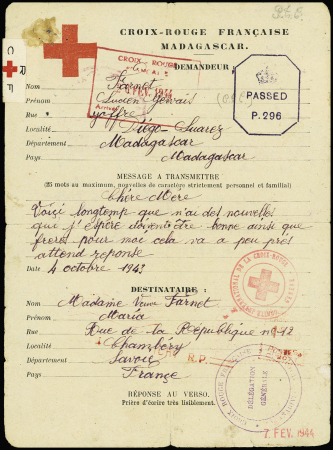 CROIX-ROUGE FRANÇAISE
MADAGASCAR.
C R F
DEMANDEUR:
CROIX - ROUGE
FEV. 1944
PASSED
P.296
Nom Farnet
Prénom Lucien Gervais
Rue Joffre
Localité Diégo-Suarez
Département Madagascar
Pays Madagascar
MESSAGE A TRANSMETTRE
(25 mots au maximum, nouvelles de caractère strictement personnel et familial)
Chère Mère
Voizi longtemp que n'ai des nouvelles
que j'espère doivent être bonne ainsi que
freres pour moi cela va a peu prés
attend réponse
Date 4 octobre 1943
DESTINATAIRE:
Nom Madame Veuve Farnet
Prénom Maria
Rue Rue de la République n° 12
Localité Chambéry
Département Savoie
Pays France
COMITÉ INTERNATIONAL DE LA CROIX-ROUGE
CROIX ROUGE FRANÇAISE
DÉLÉGATION
GÉNÉRALE
RÉPONSE AU VERSO.
Prière d'écrire très lisiblement.
7. FEV. 1944